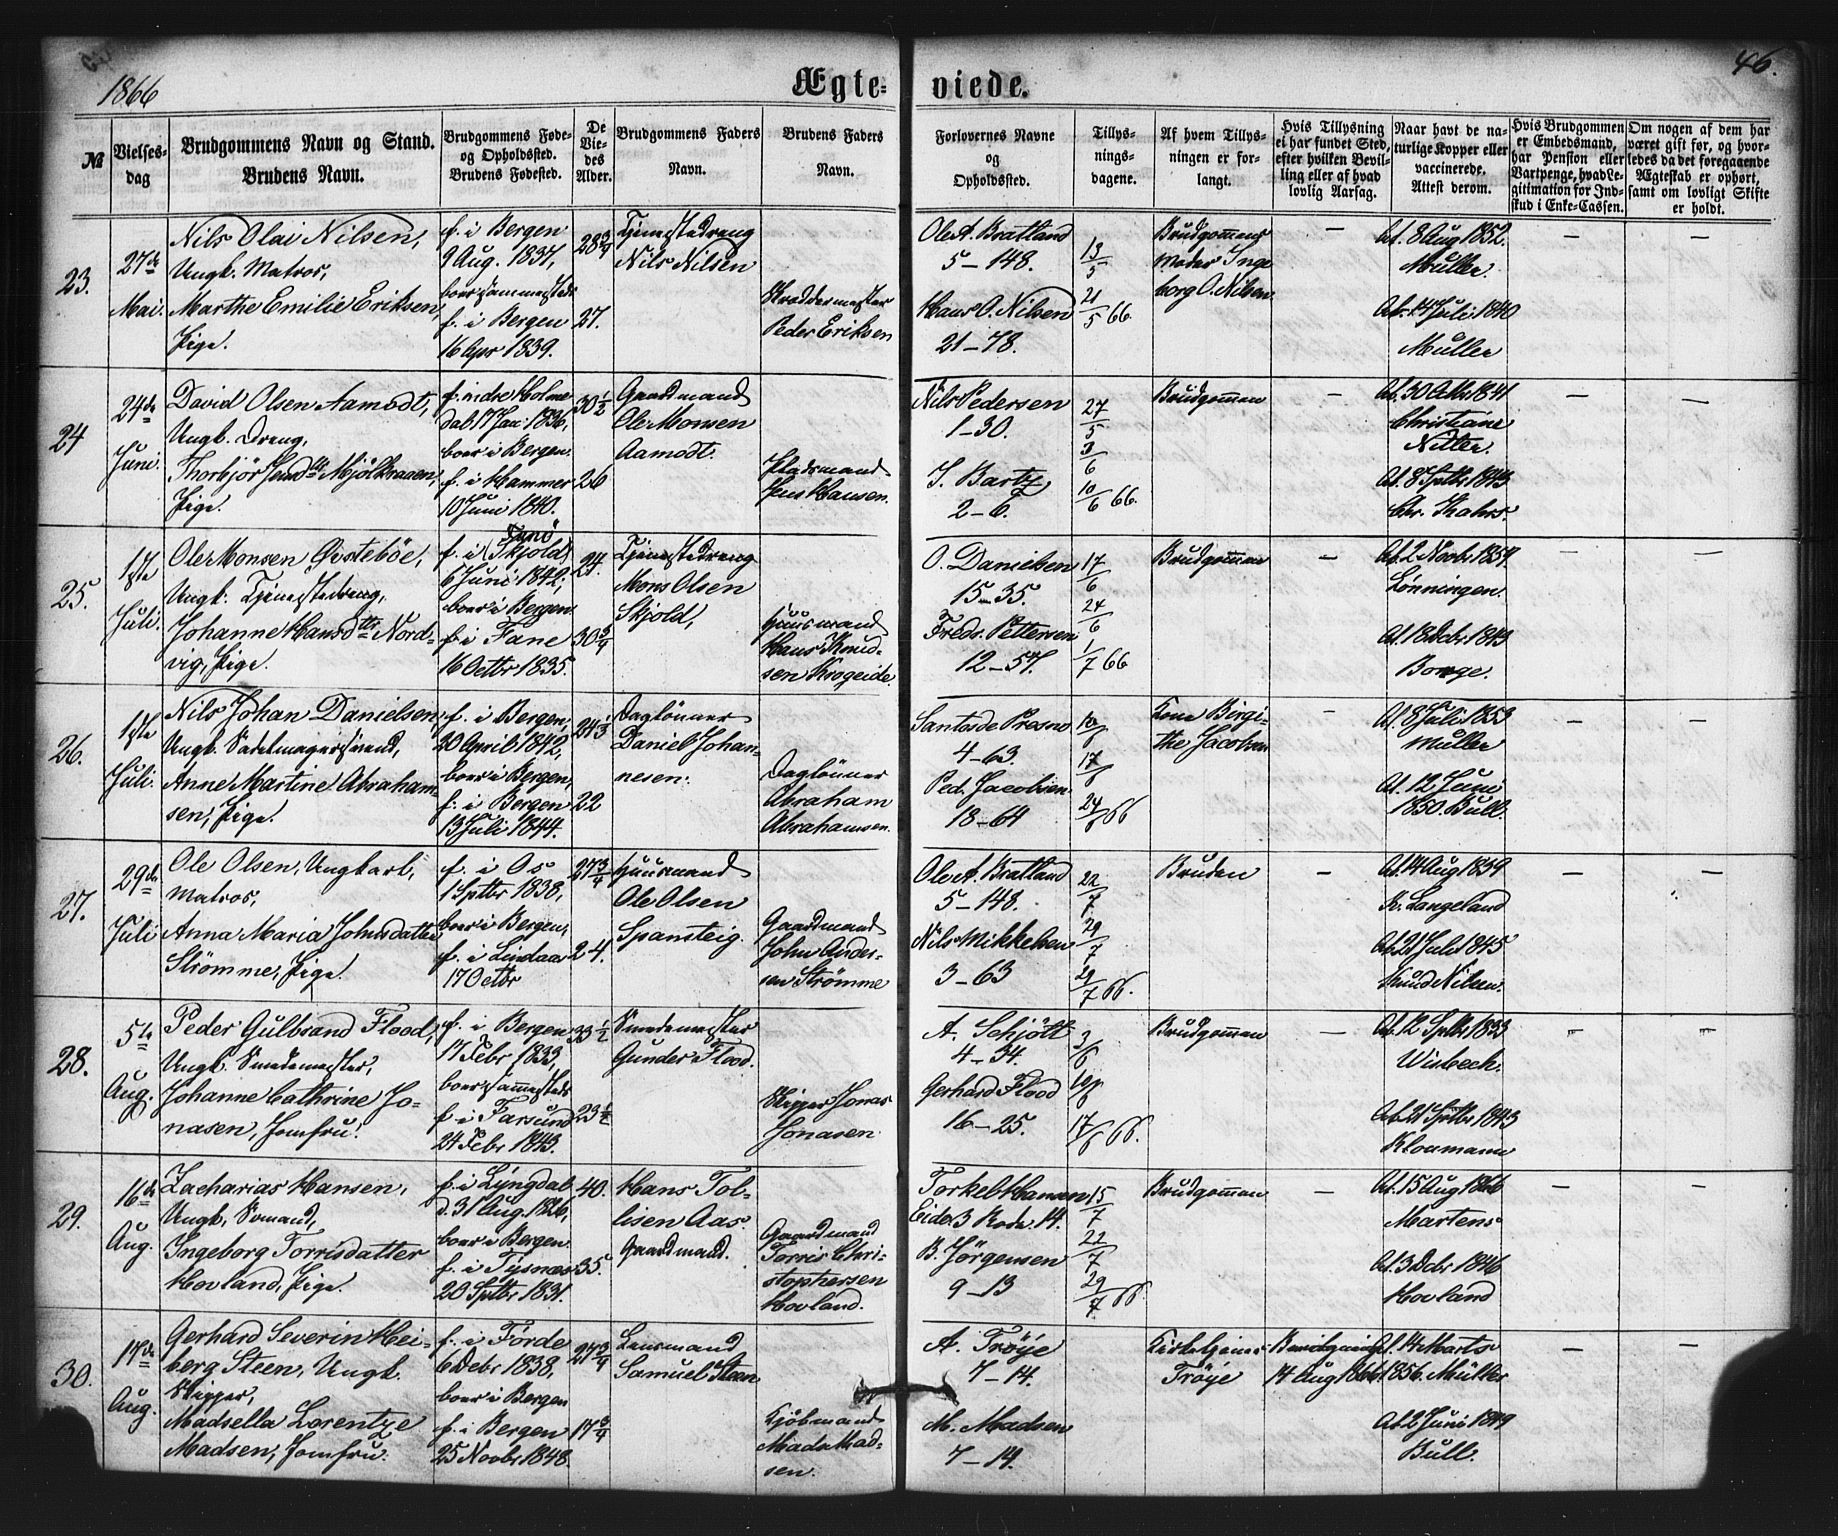 1866
Ægteviede.
46.
№
Vielsesdag
Brudgommens Navn og Stand.
Brudens Navn.
Brudgommens Føde-
og Opholdssted.
Brudens Fødested.
De
Vie-
des
Alder.
Brudgommens Faders
Navn.
Brudens Faders
Navn.
Forlovernes Navne
og
Opholdssted.
Tillys-
nings-
dagene.
Af hvem Tillys-
ningen er for-
langt.
Hvis Tillysning
ei har fundet Sted,
efter hvilken Bevil-
ling eller af hvad
lovlig Aarsag.
Naar havt de na-
turlige Kopper eller
vaccinerede.
Attest derom.
Hvis Brudgommen
er Embedsmand,
har Pension eller
Vartpenge, hvad Le-
gitimation for Ind-
skud i Enke-Cassen.
Om nogen af dem har
været gift før, og hvor-
ledes da det foregaaende
Ægteskab er ophørt,
samt om lovligt Skifte
er holdt.
23.
27de
Mai.
Nils Olai Nilsen,
Ungk. Matros,
Marthe Emilie Eriksen,
Pige.
f. i Bergen
9 Aug. 1837,
boer sammesteds
f. i Bergen
16 Apr 1839.
28 3/4
27.
Tjenestedreng
Nils Nilsen
Skræddermester
Peder Eriksen
Ole A. Bratland
5–148.
Hans O. Nilsen
21–78.
13/5
21/5 66.
Brudgommens
Moder Inge
borg O. Nilsen
–
At. 8 Aug 1852.
Müller.
At. 14 Juli 1840
Müller
–
–
24
24de
Juni.
David Olsen Aamodt,
Ungk. Dreng,
Thorbjør Jensdtr Mjölkraaen,
Pige.
f. indre Holme
dal 17 Jan: 1836,
boer i Bergen.
f. i Hammer
10 Juni 1840.
30 1/2
26
Gaardmand
Ole Monsen
Aamodt.
Pladsmand
Jens Hansen.
Nils Pedersen
1–30.
J. Bartz
2–6.
27/5
3/6
10/6 66.
Brudgommen
–
At. 30 Octbr 1841
Christiane
Nitter.
At. 8 Sptbr 1843
Chr. Kahrs.
–
–
25.
1ste
Juli.
Ole Monsen Øvstebøe,
Ungk. Tjenestedreng,
Johanne Hansdtr Nord-
vig, Pige.
Fanø
f. i (Skjold)
6 Juni 1842,
boer i Bergen
f. i Fane
16 Octbr 1835.
24.
30 3/4
Tjenestedreng
Mons Olsen
Skjold,
Huusmand
Hans Knud-
sen Krogeide.
O. Danielsen
15–35.
Fredr. Pettersen
12–57.
17/6
24/6
1/7 66
Brudgommen
–
At. 2 Novbr 1857
Lønningen.
At. 18 Decbr 1843
Borge.
–
–
26.
1ste
Juli.
Nils Johan Danielsen,
Ungk. Sadelmagersvend,
Anne Martine Abraham-
sen, Pige.
f. i Bergen,
20 April 1842,
boer i Bergen,
f. i Bergen
13 Juli 1844.
24 1/3
22
Daglønner
Daniel Johan-
nesen.
Daglønner
Abraham
Abrahamsen.
Santos de Presno
4–63.
Ped. Jacobsen
18–64
10/6
17/6
24/6 66
Kone Birgi-
the Jacobsen
At. 8 Juli 1853
Müller
At. 12 Juni
1850. Bull.
–
–
27.
29de
Juli
Ole Olsen, Ungkarl,
Matros,
Anna Maria Johnsdatter
Strømme, Pige.
f. i Os
1 Sptbr 1838,
boer i Bergen,
f. i Lindaas
17 Octbr
27 3/4
24.
Huusmand
Ole Olsen
Spansteig.
Gaardmand
John Ander-
sen Strømme
Ole A. Bratland
5–148.
Nils Mikkelsen
3–63
22/7
29/7
29/7 66.
Bruden
–
At. 14 Aug 1839
K. Langeland
At. 21 Juli 1845
Knud Nilsen.
–
–
28.
5te
Aug.
Peder Gulbrand Flood,
Ungk. Smedemester,
Johanne Cathrine Jo-
nasen, Jomfru.
f. i Bergen
17 Febr 1833,
boer sammesteds
f. i Farsund
24 Febr 1843.
33 1/2
23 1/2
Smedemester
Gunder Flood.
Skipper Jonas
Jonasen
A. Schjött
4–34.
Gerhard Flood
16–25.
3/6
10/6
17/6 66.
Brudgommen
–
At. 12 Sptbr 1833
Wisbech.
At. 21 Sptbr 1843
Kloumann
–
–
29.
16de
Aug.
Zacharias Hansen,
Ungk. Sømand,
Ingeborg Torrisdatter
Hovland, Pige.
f. i Lyngdal
d. 31 Aug. 1826,
boer i Bergen.
f. i Tysnæs
20 Sptbr 1831.
40.
35.
Hans Tol-
lisen Aas.
Gaardmand.
Gaardmand
Torris Chri-
stophersen
Hovland.
Torkel Hansen
Eide. 3 Rode. 14.
B. Jørgensen
9–13
15/7
22/7
29/7 66
Brudgommen
–
At. 15 Aug 1866
Martens
At. 3 Decbr 1846
Hovland
–
–
30.
17de
Aug.
Gerhard Severin Hei-
berg Steen, Ungk.
Skipper,
Madsella Lorentze
Madsen, Jomfru.
f. i Førde
6 Decbr 1838,
boer i Bergen
f. i Bergen
25 Novbr 1848.
27 3/4
17 3/4
Lensmand
Samuel Steen
Kjøbmand
Mads Mad-
sen.
A. Trøye
7–14.
M. Madsen
7–14.
Kirketjener
Trøye
Bevilgning
14 Aug 1866
At. 14 Marts
1856. Müller
At. 2 Juni 1849
Bull.
–
–